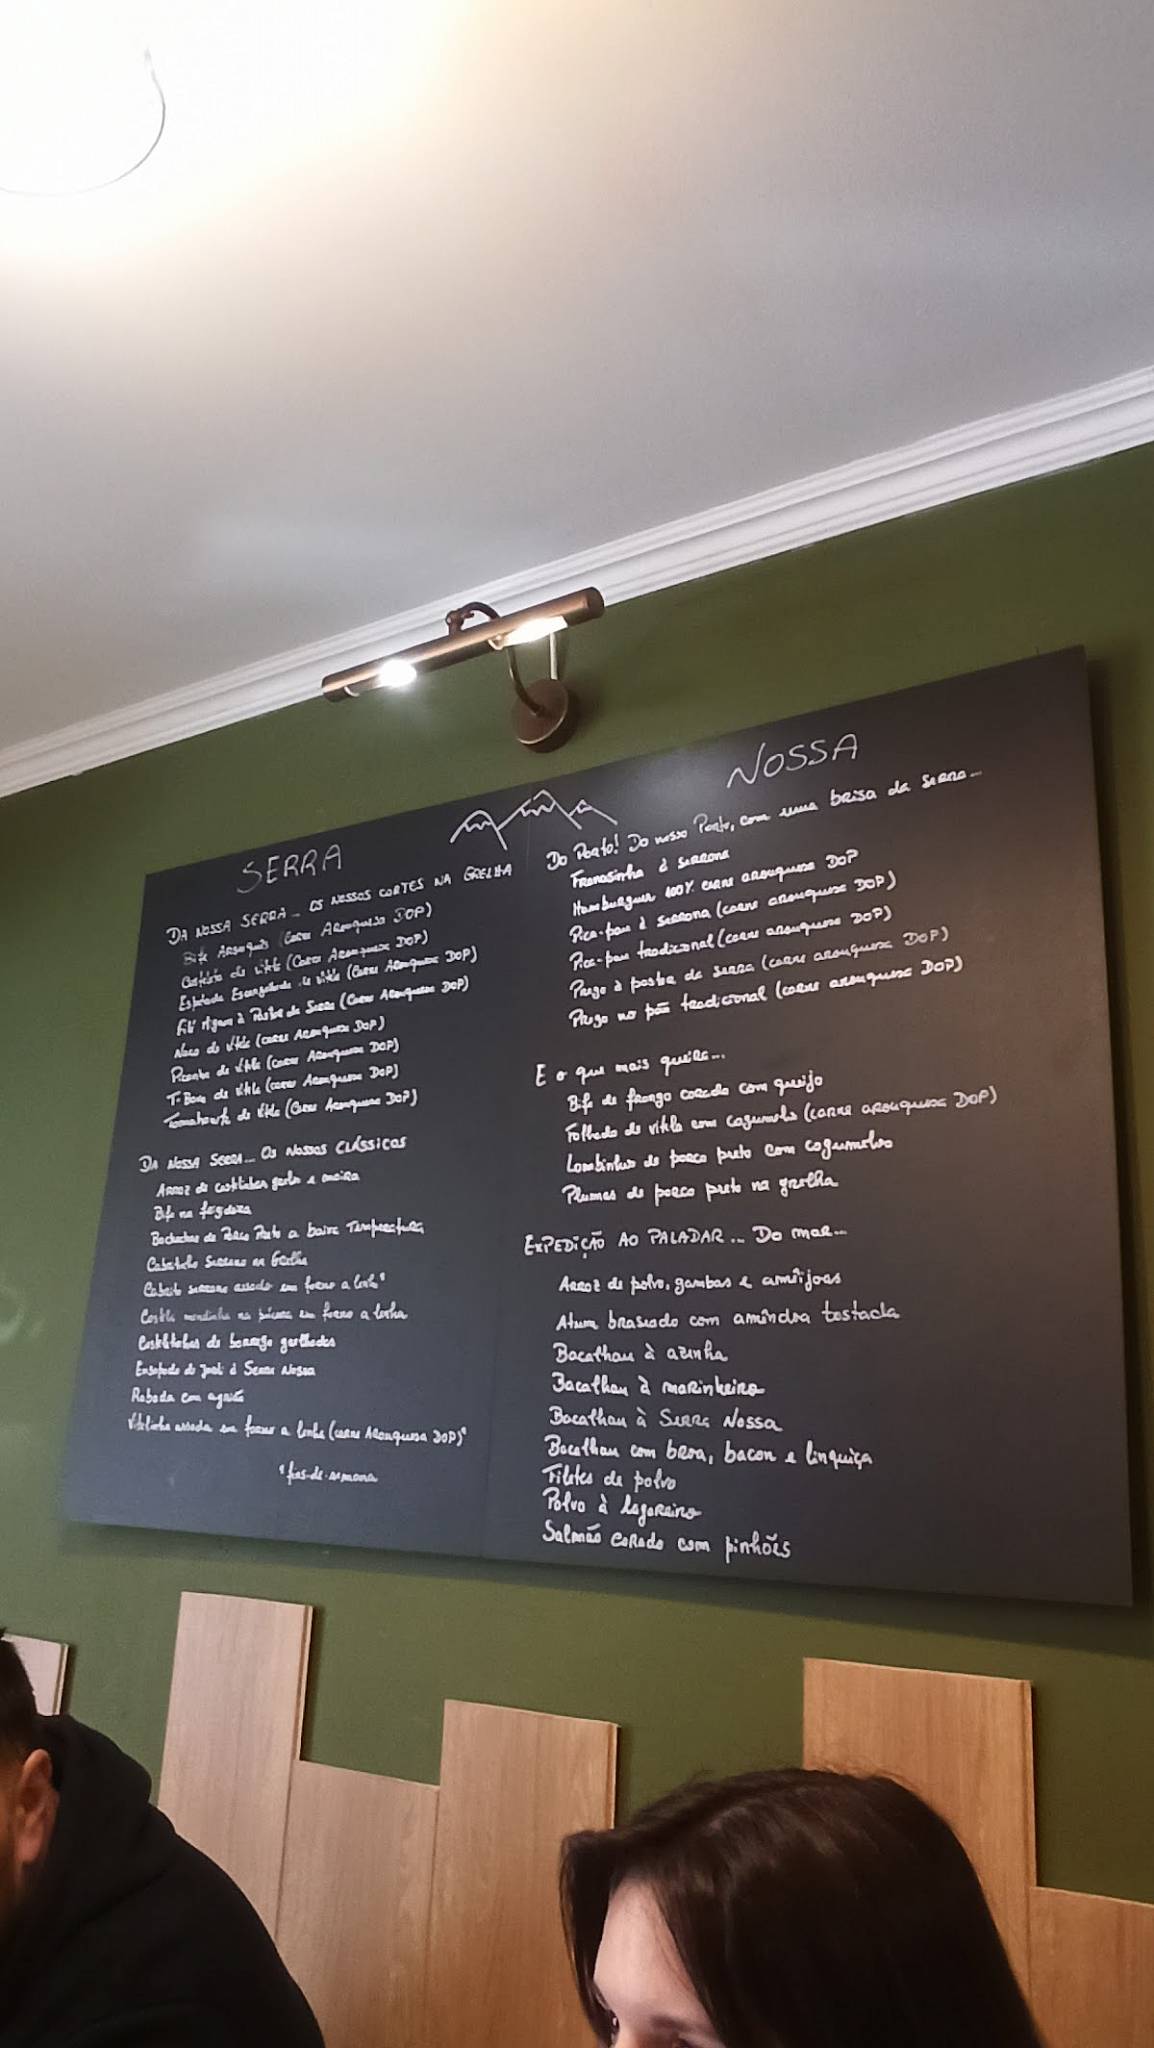 SERRA
DA NOSSA SERRA... OS NOSSOS CORTES NA GRELHA
Bife Arouquês (Carne Arouquesa DOP)
Costeleta de vitela (Carne Arouquesa DOP)
Espetada Escangalhada de vitela (Carne Arouquesa DOP)
Filé Mignon à Pastor da Serra (Carne Arouquesa DOP)
Naco de vitela (carne Arouquesa DOP)
Picanha de vitela (carne Arouquesa DOP)
T-Bone de vitela (carne Arouquesa DOP)
Tomahawk de vitela (Carne Arouquesa DOP)
DA NOSSA SERRA... OS NOSSOS CLÁSSICOS
Arroz de costelinhas e moira
Bife na
Bochechas de Porco Preto a baixa Temperatura
Cabritinho Serrano na Grelha
Cabrito serrano assado em forno a lenha*
Costela mendinha na em forno a lenha
Costeletinhas de borrego grelhadas
Ensopado de Javali à Serra Nossa
Rabada com agrião
Vitelinha assada em forno a lenha (carne Arouquesa DOP)*
*fins-de-semana
NOSSA
Do Porto! Do nosso Porto, com uma brisa da serra...
Francesinha à serrana
Hamburguer 100% carne arouquesa DOP
Pica-pau à serrana (carne arouquesa DOP)
Pica-pau tradicional (carne arouquesa DOP)
Prego à pastor da serra (carne arouquesa DOP)
Prego no pão tradicional (carne arouquesa DOP)
E o que mais queira...
Bife de frango corado com queijo
Folhado de vitela com cogumelos (carne arouquesa DOP)
Lombinhos de porco preto com cogumelos
Plumas de porco preto na grelha
EXPEDIÇÃO AO PALADAR... Do mar...
Arroz de polvo, gambas e amêijoas
Atum braseado com amêndoa tostada
Bacalhau à azinha
Bacalhau à marinheiro
Bacalhau à Serra Nossa
Bacalhau com broa, bacon e linguiça
Filetes de polvo
Polvo à lagareiro
Salmão corado com pinhões